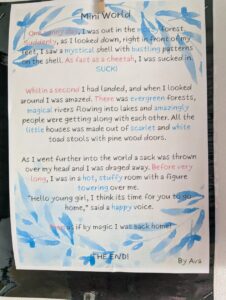 Mini World
One sunny day, I was out in the misty forest.
Suddenly, as I looked down, right in front of my
feet, I saw a mystical shell with bustling patterns
on the shell. As fast as a cheetah, I was sucked in.
SUCK!
Whilst in a second I had landed, and when I looked
around I was amazed. There was evergreen forests,
magical rivers flowing into lakes and amazingly
people were getting along with each other. All the
little houses was made out of scarlet and white
toad stools with pine wood doors.
As I went further into the world a sack was thrown
over my head and I was draged away. Before very
long, I was in a hot, stuffy room with a figure
towering over me.
"Hello young girl, I think its time for you to go
home," said a happy voice.
as if by magic I was back home!
THE END!
By Ava